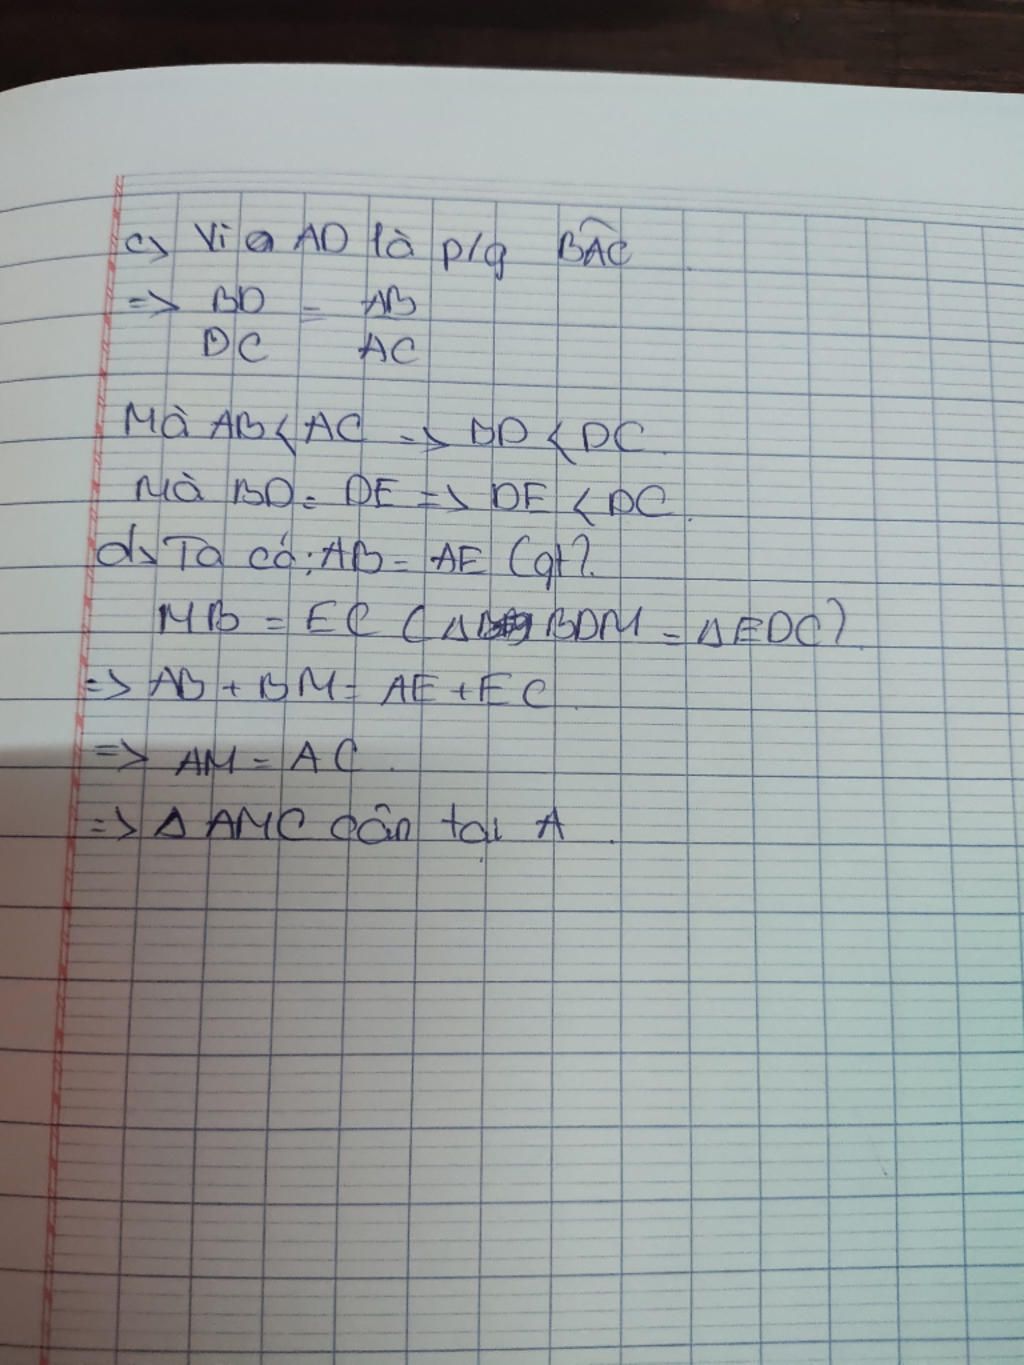 c) Vì AD là p/g BÂC
=> BD/DC = AB/AC
Mà AB < AC => BD < DC.
Mà BD = DE => DE < DC.
d) Ta có: AB = AE (gt).
MB = EC (Δ BDM = Δ EDC).
=> AB + BM = AE + EC
=> AM = AC.
=> Δ AMC cân tại A.